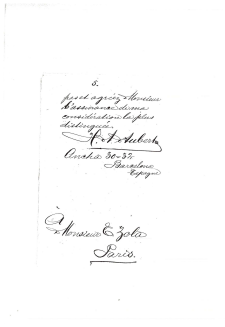 5.
et agréez Monsieur
l'assurance de ma
considération la plus
distinguée.
A. Aubert
Ancha 30-32
Barcelone
Espagne
À
Monsieur E Zola
Paris.